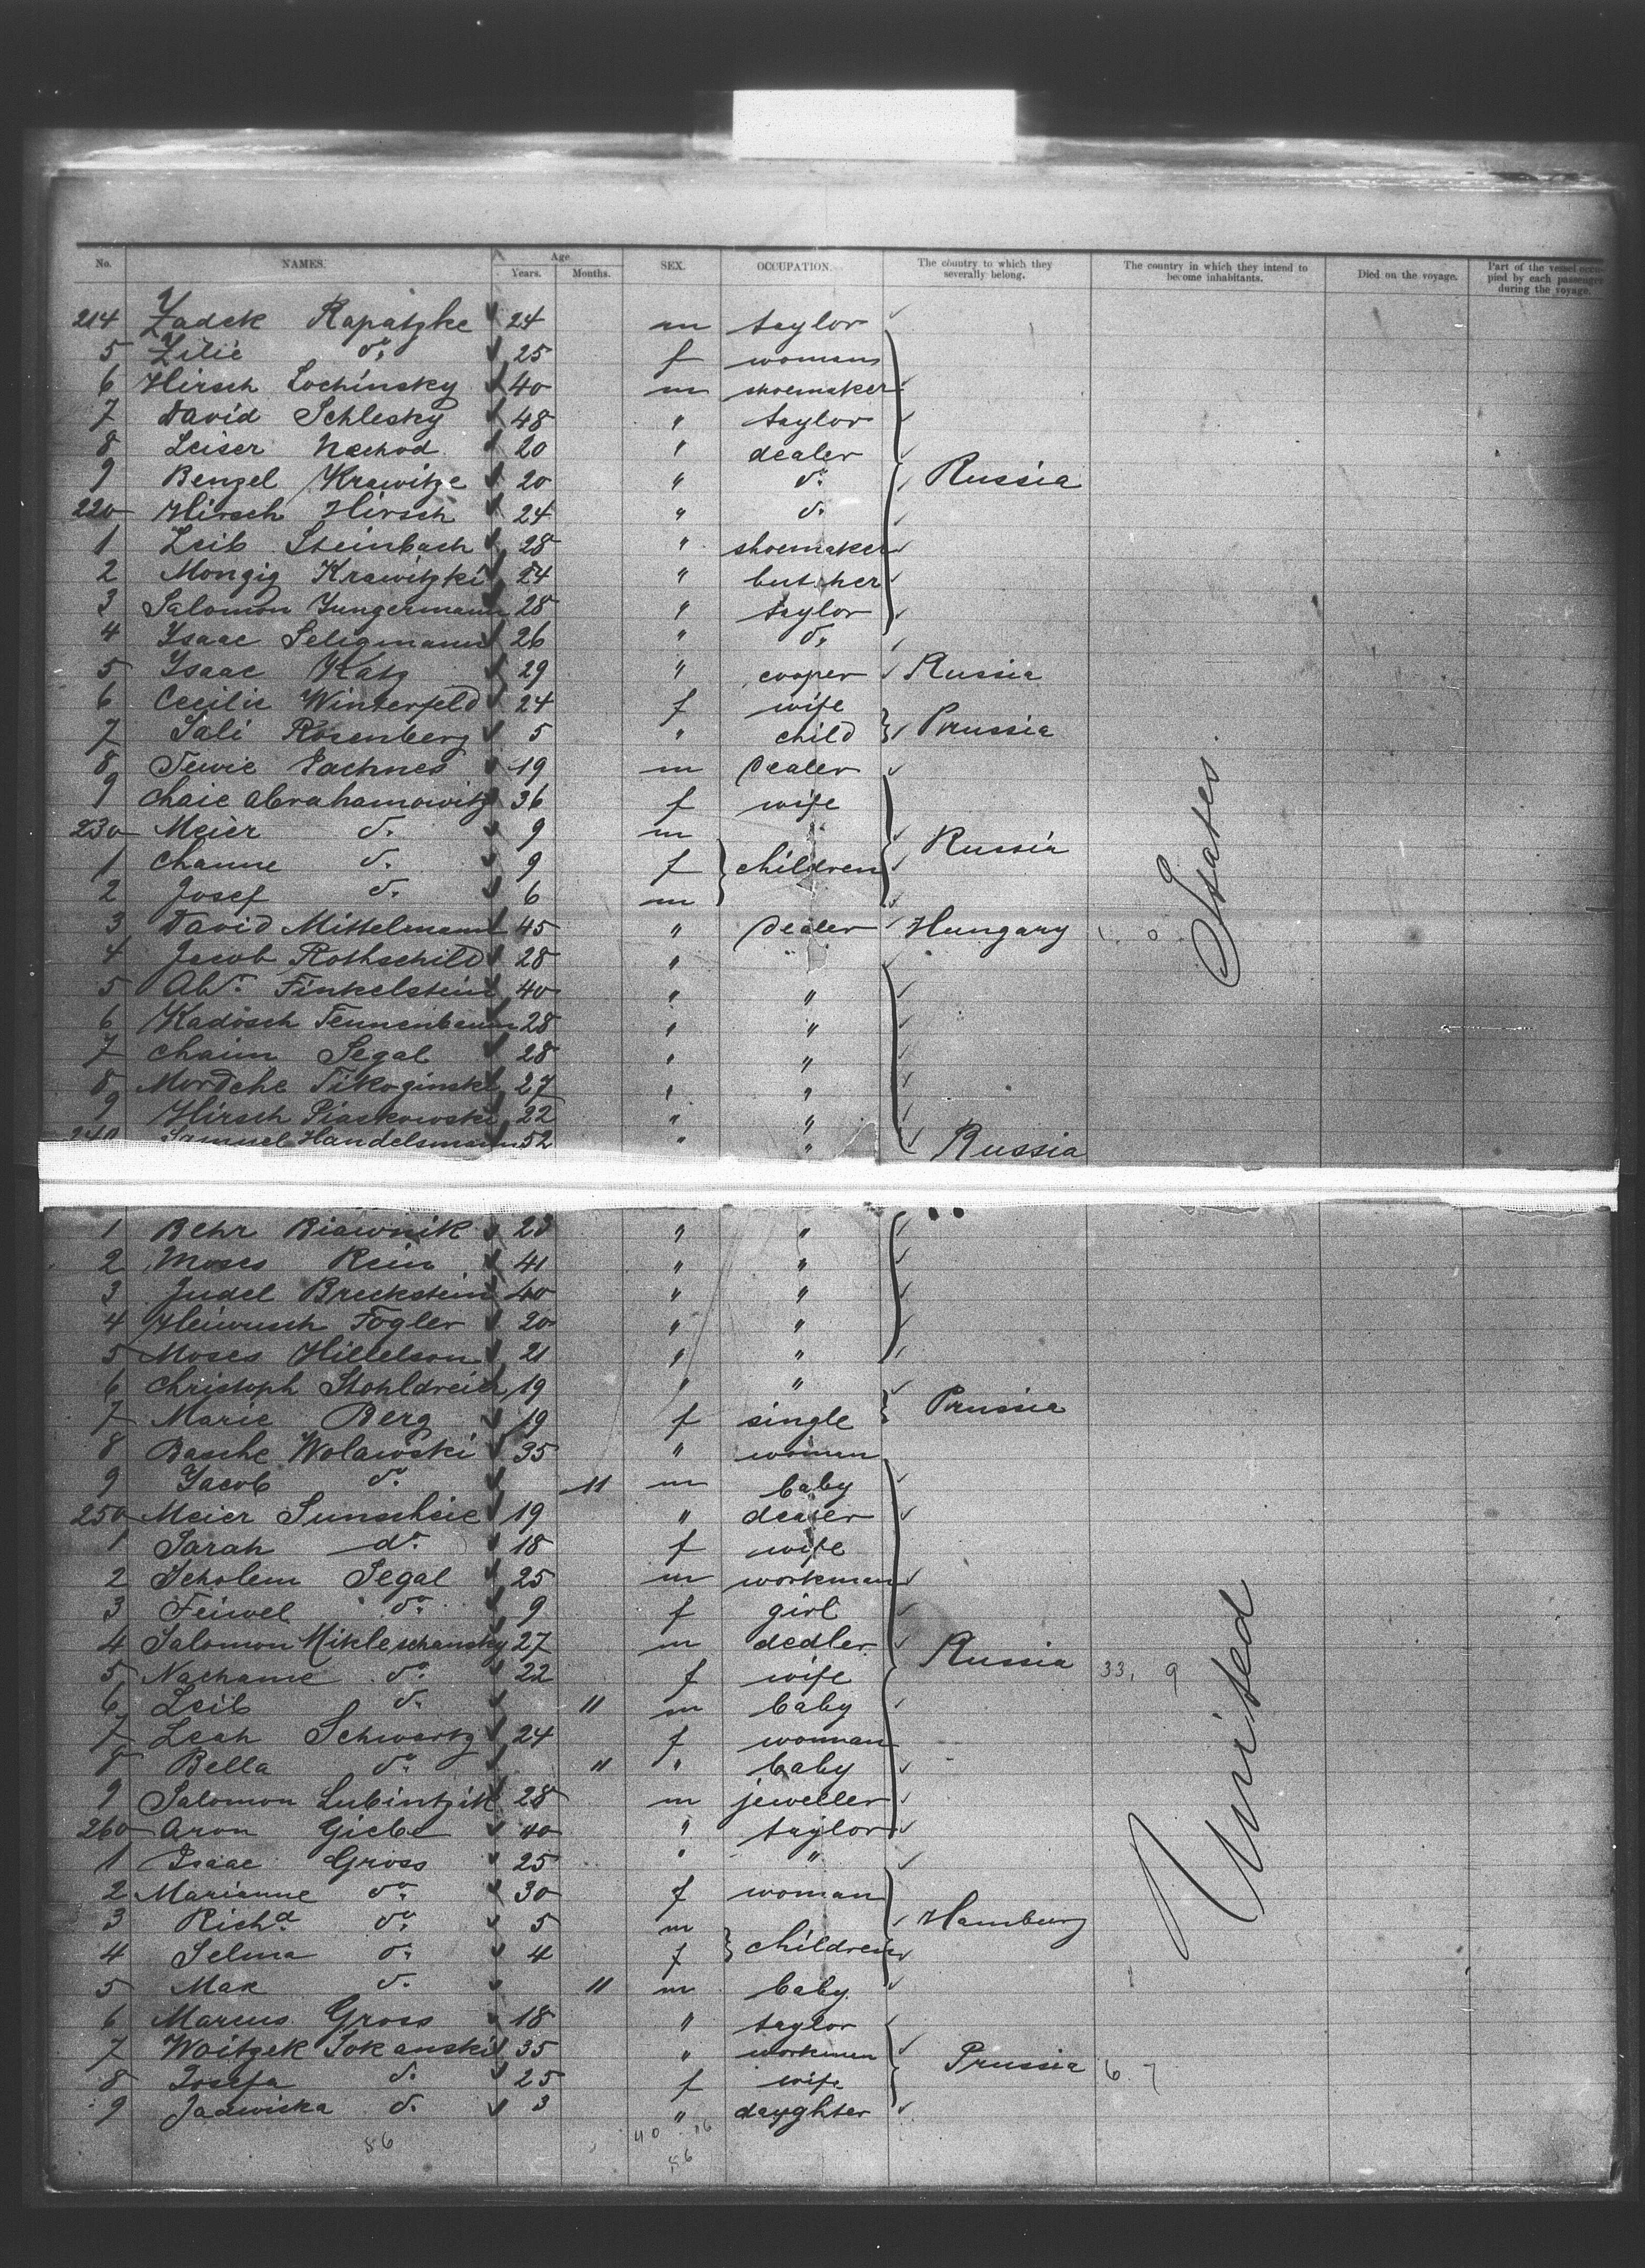 No. NAMES. Age Years. Months. SEX. OCCUPATION. The country to which they severally belong. The country in which they intend to become inhabitants. Died on the voyage. Part of the vessel occupied by each passenger during the voyage.
214 Zadek Rapatzke 24 m taylor
5 Zilie do 25 f womans
6 Hirsch Lochinsky 40 m shoemaker
7 David Schlesky 48 " taylor
8 Leiser Nechod 20 " dealer
9 Benzel Krawitze 20 " do Russia
220 Hirsch Hirsch 24 " do
1 Leib Steinbach 28 " shoemaker
2 Mongig Krawitzki 24 " butcher
3 Salomon Jungermann 28 " taylor
4 Isaac Seligmann 26 " do
5 Isaac Katz 29 " cooper Russia
6 Cecilie Winterfeld 24 f wife
7 Sali Rosenberg 5 " child Prussia
8 Tewie Sachnes 19 m Dealer
9 Chaie Abrahamowitz 36 f wife
230 Meier do 9 m Russia
1 Channe do 9 f children
2 Josef do 6 m
3 David Mittelmann 45 " Dealer Hungary
4 Jacob Rothschild 28 "
5 Abr. Finkelstein 40 " "
6 Kadosch Tennenbaum 28 " "
7 Chaim Segal 28 " "
8 Mordche Tikoginski 27 " "
9 Hirsch Piaskowski 22 " "
240 Samuel Handelsmann 52 " " Russia
1 Behr Biawnik 23 " "
2 Moses Rein 41 " "
3 Judel Breckstein 40 " "
4 Heiwusch Fogler 20 " "
5 Moses Hillelson 21 " "
6 Christoph Stohldreier 19 " "
7 Marie Berg 19 f single Prussia
8 Basche Wolawski 35 " woman
9 Jacob do 11 m baby
250 Meier Sunscheie 19 " dealer
1 Sarah do 18 f wife
2 Scholem Segal 25 m workman
3 Feiwel do 9 f girl
4 Salomon Mikleschansky 27 m dedler
5 Nachame do 22 f wife Russia 33, 9
6 Leib do 11 m baby
7 Leah Schwartz 24 f woman
8 Bella do 11 " baby
9 Salomon Lubintzik 28 m jeweller
260 Aron Giebe 40 " taylor
1 Isaac Gross 25 " "
2 Marianne do 30 f woman
3 Richd do 5 m Hamburg
4 Selma do 4 f children
5 Max do 11 m baby
6 Marcus Gross 18 " taylor
7 Woitzek Sokanski 35 " workmen
8 Josefa do 25 f wife Prussia 6 7
9 Jadwiska do 3 " dayghter
86 40 16
56
United States.